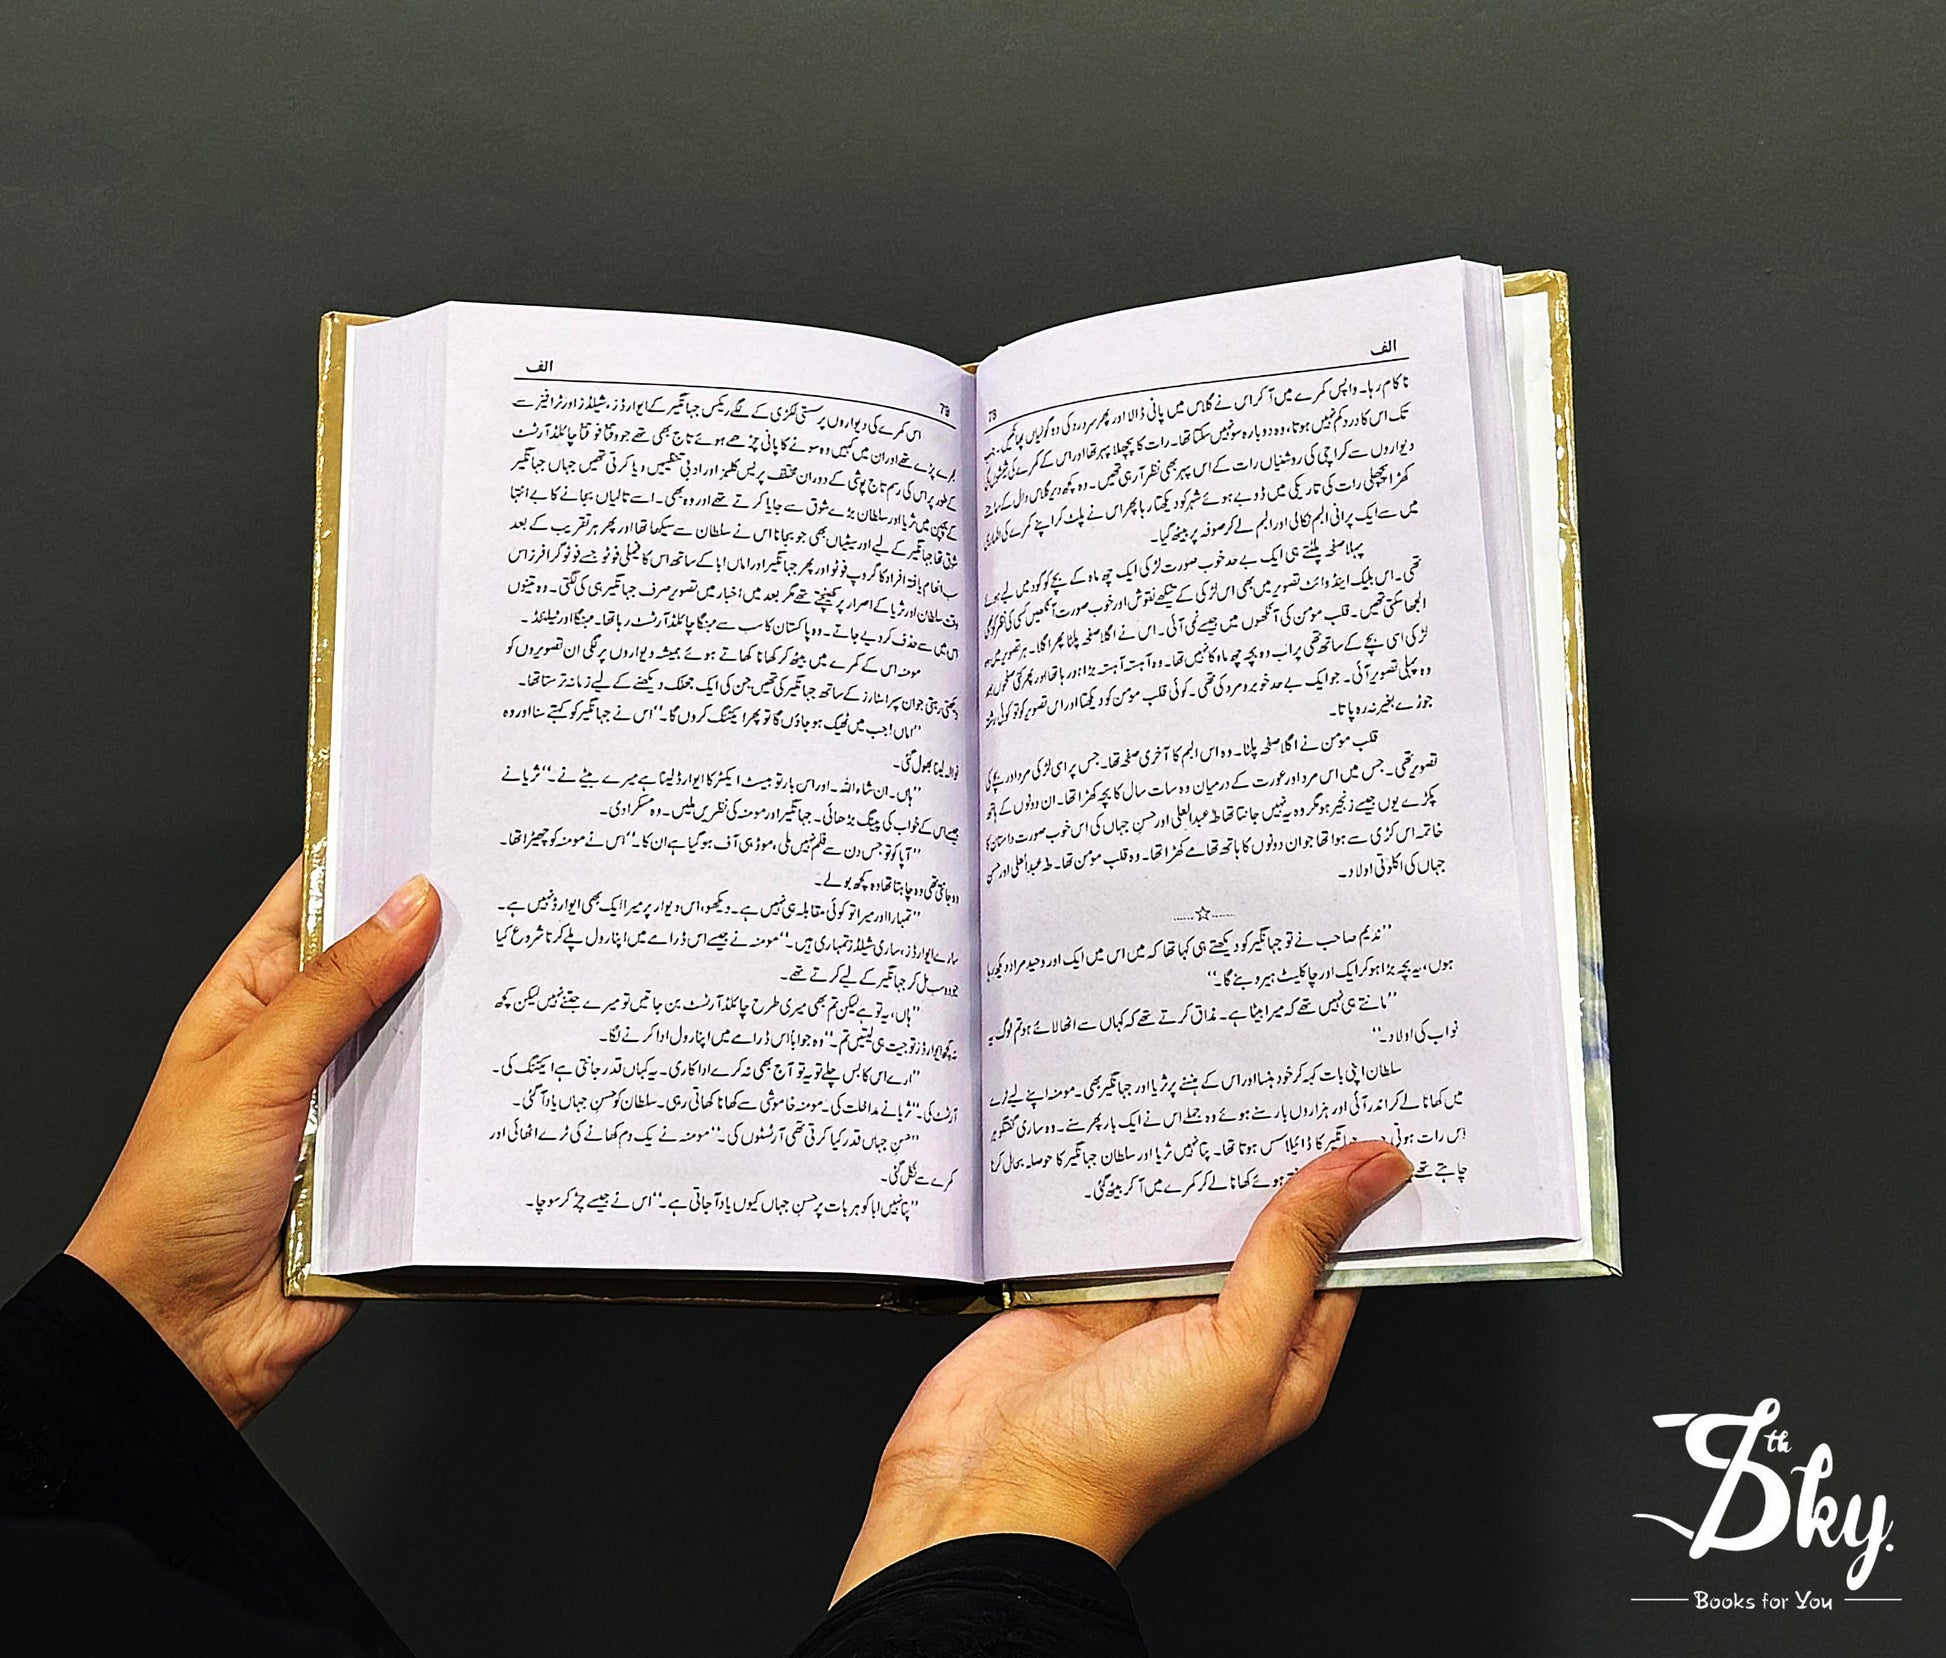 الف
78
ناکام رہا۔ واپس کمرے میں آکر اس نے گلاس میں پانی ڈالا اور پھر سردرد کی دو گولیاں پھانکیں۔ جب
تک اس کا درد کم نہیں ہوتا، وہ دوبارہ سو نہیں سکتا تھا۔ رات کا پچھلا پہر تھا اور اس کے کمرے کی شیشوں کی
دیواروں سے کراچی کی روشنیاں رات کے اس پہر بھی نظر آرہی تھیں۔ وہ کچھ دیر گلاس وال کے سامنے
کھڑا پچھلی رات کی تاریکی میں ڈوبے ہوئے شہر کو دیکھتا رہا پھر اس نے پلٹ کر اپنے کمرے کی الماری
میں سے ایک پرانی البم نکالی اور البم لے کر صوفہ پر بیٹھ گیا۔
پہلا صفحہ پلٹتے ہی ایک بے حد خوب صورت لڑکی ایک چھ ماہ کے بچے کو گود میں لیے ہوئے
تھی۔ اس بلیک اینڈ وائٹ تصویر میں بھی اس لڑکی کے تیکھے نقوش اور خوب صورت آنکھیں کسی کی نظر کو بھی
الجھا سکتی تھیں۔ قلب مومن کی آنکھوں میں جیسے نمی آئی۔ اس نے اگلا صفحہ پلٹا پھر اگلا۔ ہر تصویر میں وہ
لڑکی اسی بچے کے ساتھ تھی پر اب وہ بچہ چھ ماہ کا نہیں تھا۔ وہ آہستہ آہستہ بڑا ہو رہا تھا اور پھر کئی صفحوں بعد
وہ پہلی تصویر آئی۔ جو ایک بے حد خوبرو مرد کی تھی۔ کوئی قلب مومن کو دیکھتا اور اس تصویر کو تو کوئی رشتہ
جوڑے بغیر نہ رہ پاتا۔
قلب مومن نے اگلا صفحہ پلٹا۔ وہ اس البم کا آخری صفحہ تھا۔ جس پر اسی لڑکی مرد اور بچے کی
تصویر تھی۔ جس میں اس مرد اور عورت کے درمیان وہ سات سال کا بچہ کھڑا تھا۔ ان دونوں کے ہاتھ
پکڑے یوں جیسے زنجیر ہو مگر وہ یہ نہیں جانتا تھا طہٰ عبدالعلی اور حسن جہاں کی اس خوب صورت داستان کا
خاتمہ اس کڑی سے ہوا تھا جو ان دونوں کا ہاتھ تھامے کھڑا تھا۔ وہ قلب مومن تھا۔ طہٰ عبدالعلی اور حسن
جہاں کی اکلوتی اولاد۔
......☆......
’’ندیم صاحب نے تو جہانگیر کو دیکھتے ہی کہا تھا کہ میں اس میں ایک اور وحید مراد دیکھ رہا
ہوں، یہ بچہ بڑا ہو کر ایک اور چاکلیٹ ہیرو بنے گا۔‘‘
’’مانتے ہی نہیں تھے کہ میرا بیٹا ہے۔ مذاق کرتے تھے کہ کہاں سے اٹھا لائے ہو تم لوگ یہ
نواب کی اولاد۔‘‘
سلطان اپنی بات کہہ کر خود ہنسا اور اس کے ہنسنے پر ثریا اور جہانگیر بھی۔ مومنہ اپنے لیے ٹرے
میں کھانا لے کر اندر آئی اور ہزاروں بار سنے ہوئے وہ جملے اس نے ایک بار پھر سنے۔ وہ ساری گفتگو ہر
اس رات ہوتی جہانگیر کا ڈائیلاسس ہوتا تھا۔ پتا نہیں ثریا اور سلطان جہانگیر کا حوصلہ بحال کرنا
چاہتے تھے ہوئے کھانا لے کر کمرے میں آکر بیٹھ گئی۔
الف
79
اس کمرے کی دیواروں پر سستی لکڑی کے لگے ریکس جہانگیر کے ایوارڈز، شیلڈز اور ٹرافیز سے
بھرے پڑے تھے اور ان میں کہیں وہ سونے کا پانی چڑھے ہوئے تاج بھی تھے جو وقتاً فوقتاً چائلڈ آرٹسٹ
کے طور پر اس کی رسم تاج پوشی کے دوران مختلف پریس کلبز اور ادبی تنظیمیں دیا کرتی تھیں جہاں جہانگیر
کے بچپن میں ثریا اور سلطان بڑے شوق سے جایا کرتے تھے اور وہ بھی۔ اسے تالیاں بجانے کا بے انتہا
شوق تھا جہانگیر کے لیے اور سیٹیاں بھی جو بجانا اس نے سلطان سے سیکھا تھا اور پھر ہر تقریب کے بعد
سب انعام یافتہ افراد کا گروپ فوٹو اور پھر جہانگیر اور اماں ابا کے ساتھ اس کا فیملی فوٹو جسے فوٹو گرافرز اس
وقت سلطان اور ثریا کے اصرار پر کھینچتے تھے مگر بعد میں اخبار میں تصویر صرف جہانگیر ہی کی لگتی۔ وہ تینوں
اس میں سے حذف کر دیے جاتے۔ وہ پاکستان کا سب سے مہنگا چائلڈ آرٹسٹ رہا تھا۔ مہنگا اور ٹیلنٹڈ۔
مومنہ اس کے کمرے میں بیٹھ کر کھانا کھاتے ہوئے ہمیشہ دیواروں پر لگی ان تصویروں کو
دیکھتی رہتی جو ان سپر اسٹارز کے ساتھ جہانگیر کی تھیں جن کی ایک جھلک دیکھنے کے لیے زمانہ ترستا تھا۔
’’اماں! جب میں ٹھیک ہو جاؤں گا تو پھر ایکٹنگ کروں گا۔‘‘ اس نے جہانگیر کو کہتے سنا اور وہ
نوالہ لینا بھول گئی۔
’’ہاں۔ ان شاء اللہ۔ اور اس بار تو بیسٹ ایکٹر کا ایوارڈ لینا ہے میرے بیٹے نے۔‘‘ ثریا نے
جیسے اس کے خواب کی پینگ بڑھائی۔ جہانگیر اور مومنہ کی نظریں ملیں۔ وہ مسکرا دی۔
’’آپا کو تو جس دن سے فلم نہیں ملی، موڈ ہی آف ہو گیا ہے ان کا۔‘‘ اس نے مومنہ کو چھیڑا تھا۔
وہ جانتی تھی وہ چاہتا تھا وہ کچھ بولے۔
’’تمہارا اور میرا تو کوئی مقابلہ ہی نہیں ہے۔ دیکھو، اس دیوار پر میرا ایک بھی ایوارڈ نہیں ہے۔
سارے ایوارڈز، ساری شیلڈز تمہاری ہیں۔‘‘ مومنہ نے جیسے اس ڈرامے میں اپنا رول پلے کرنا شروع کیا
جو وہ سب مل کر جہانگیر کے لیے کرتے تھے۔
’’ہاں، یہ تو ہے لیکن تم بھی میری طرح چائلڈ آرٹسٹ بن جاتیں تو میرے جتنے نہیں لیکن کچھ
نہ کچھ ایوارڈز تو جیت ہی لیتیں تم۔‘‘ وہ جواباً اس ڈرامے میں اپنا رول ادا کرنے لگا۔
’’ارے اس کا بس چلے تو یہ تو آج بھی نہ کرے اداکاری۔ یہ کہاں قدر جانتی ہے ایکٹنگ کی۔
آرٹ کی۔‘‘ ثریا نے مداخلت کی۔ مومنہ خاموشی سے کھانا کھاتی رہی۔ سلطان کو حسن جہاں یاد آگئی۔
’’حسن جہاں قدر کیا کرتی تھی آرٹسٹوں کی۔‘‘ مومنہ نے یک دم کھانے کی ٹرے اٹھائی اور
کمرے سے نکل گئی۔
’’پتا نہیں ابا کو ہر بات پر حسن جہاں کیوں یاد آ جاتی ہے۔‘‘ اس نے جیسے چڑ کر سوچا۔
7th Sky.
Books for You